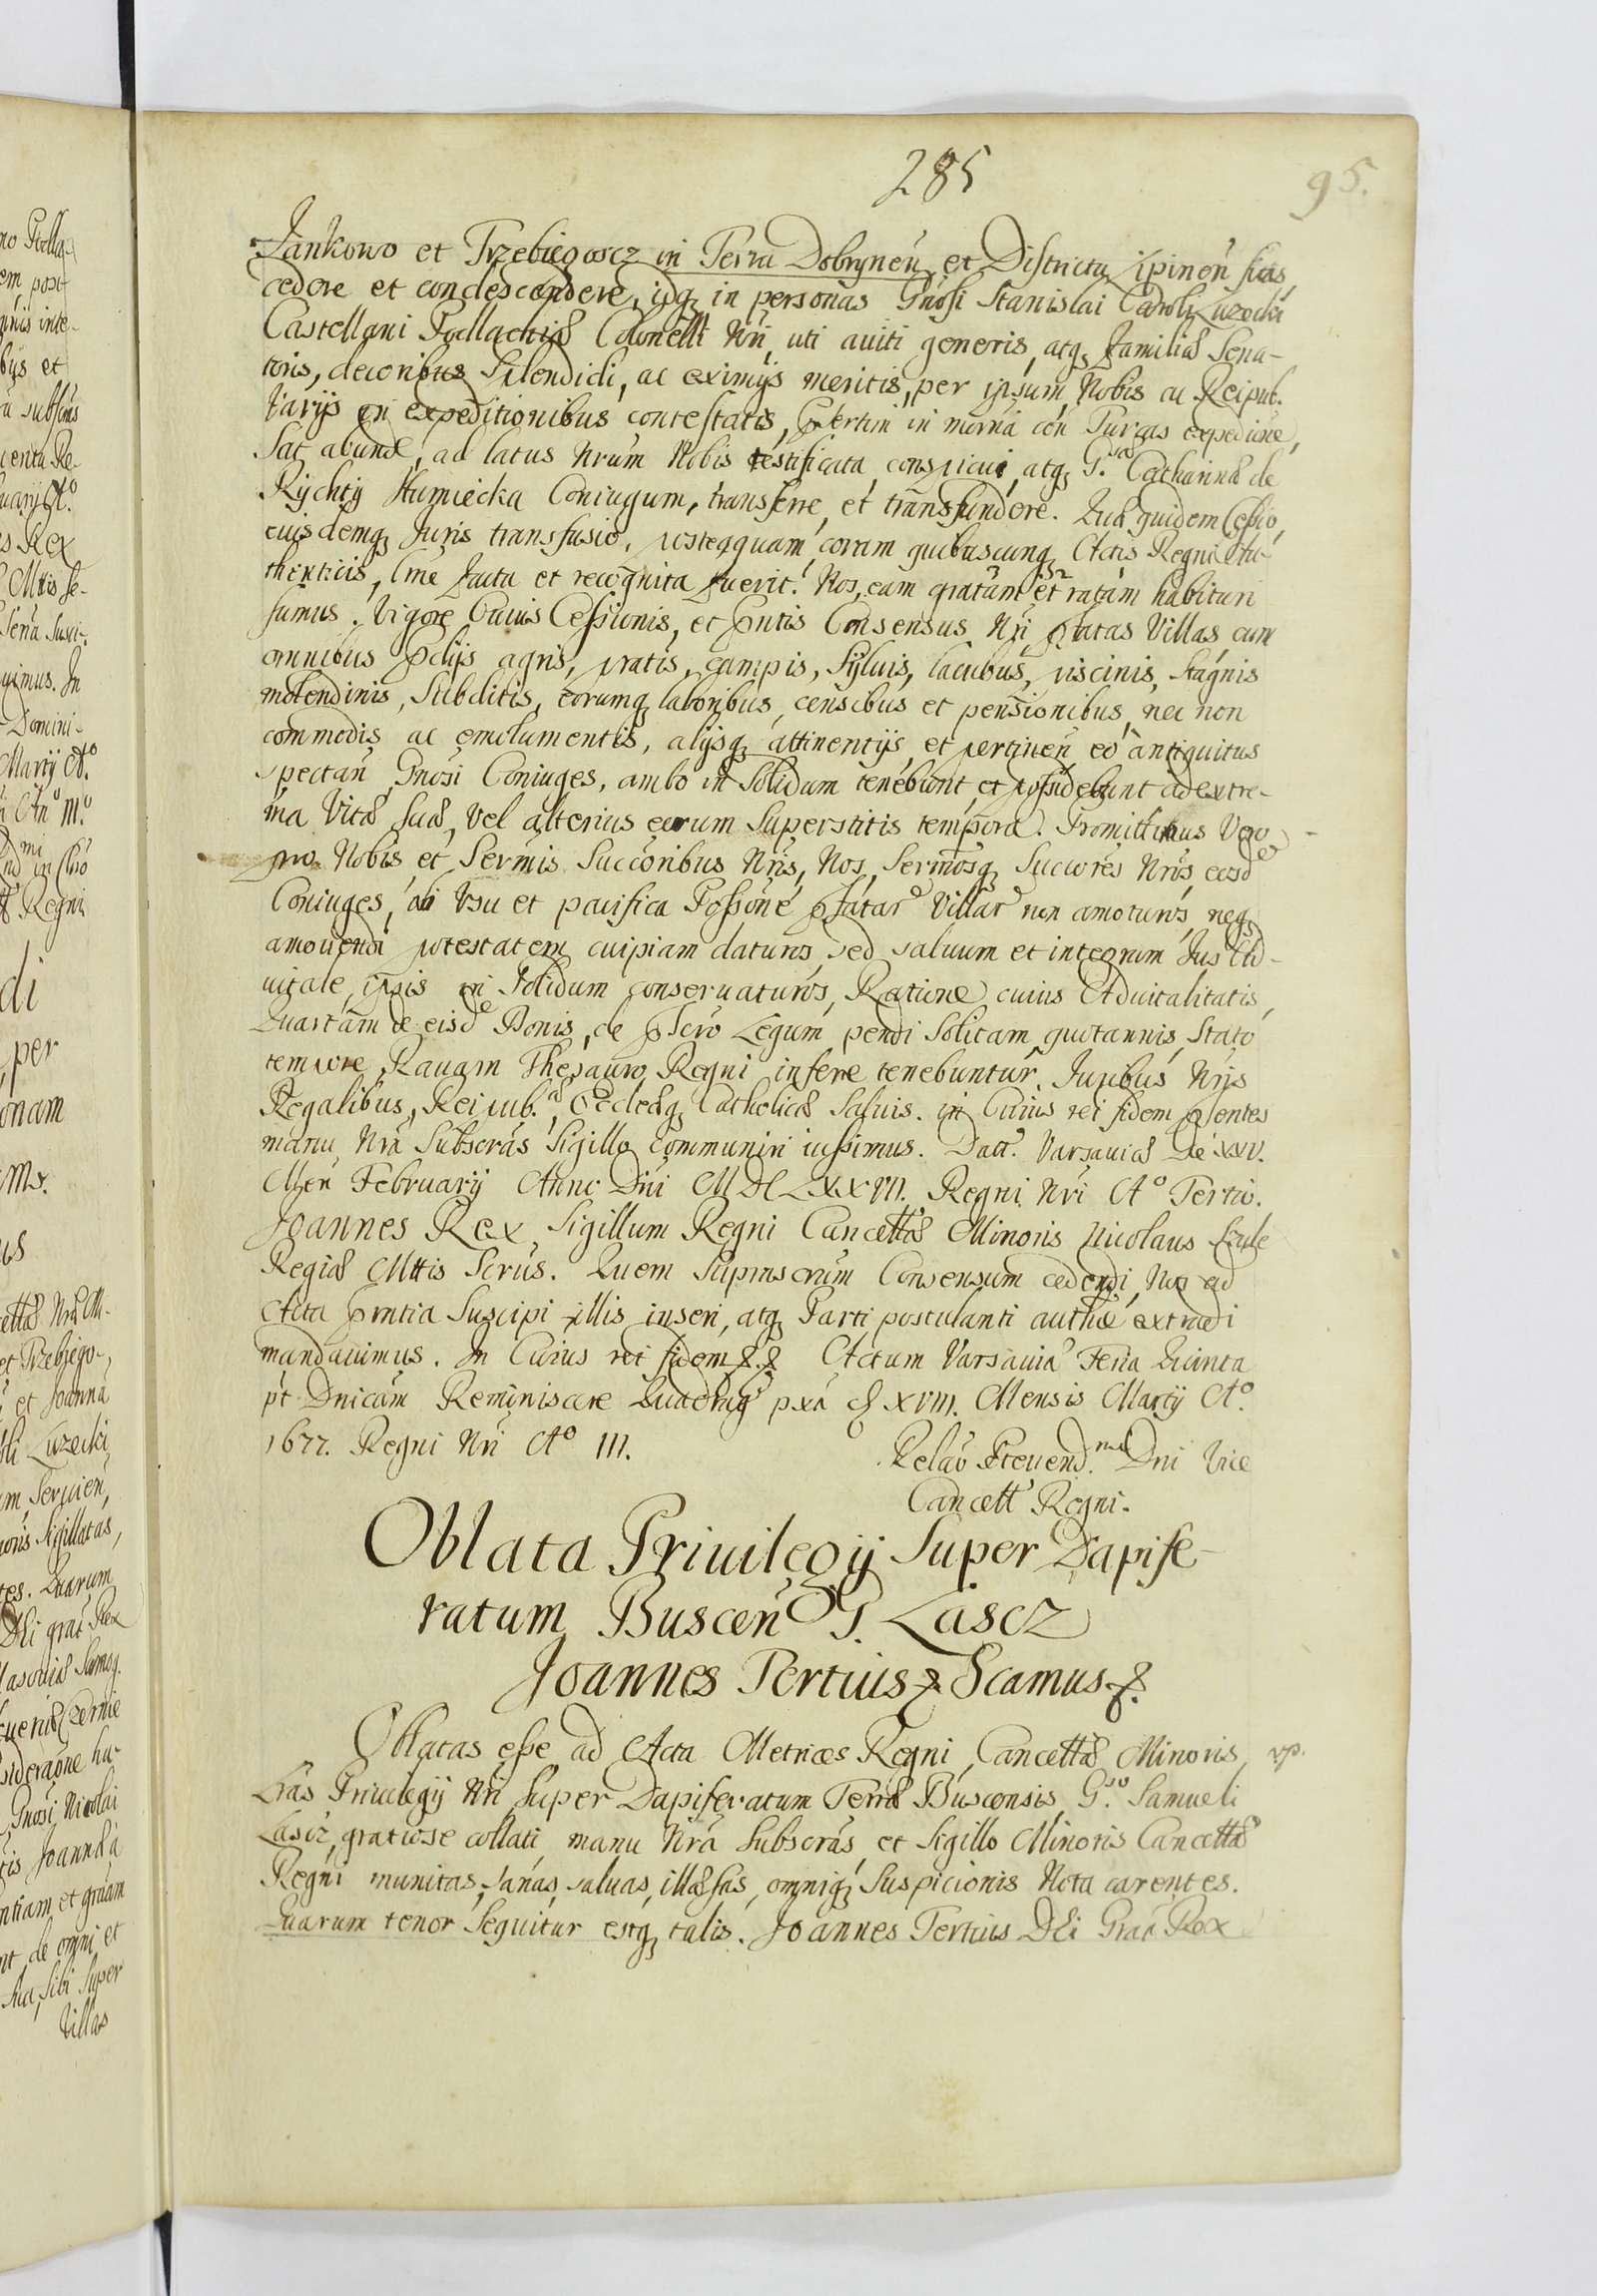 285
95.
Jankowo et Trzebiegoscz in Terra Dobrynen̄ et Districtu Lipinen̄ sitas,
cedere et condescendere, idq, in personas Gn̄osi Stanislai Caroli Luzecki
Castellani Podlachiæ Colonelli Nr̄i, uti auiti generis, atq, Familiæ Sena-
toris, decoribus Splendidi, ac eximijs meritis, per ipsum Nobis ac Reipub.
Varijs in expeditionibus contestatis, p̄sertim in moderna con̄ Turcas expedi͠one,
Sat abunde, ad latus Nrūm Nobis testificata, conspicui, atq, G.sæ Catharinæ de
Rychty Humiecka Coniugum, transferre, et transfundere. Quæ quidem Cessio,
eiusdemq, Juris transfusio, posteaquam coram quibuscunq, Actis Regni Au-
thenticis, l͠me facta et recognita fuerit. Nos, eam gratam et ratam habituri
sumus. Vigore Cuius Cessionis, et p̄ntis Consensus Nr̄i p̄fatas Villas cum
omnibus p̄dijs agris, pratis, campis, syluis, lacubus, piscinis, stagnis
molendinis, Subditis, eorumq, laboribus, censibus et pensionibus, nec non
commodis ac emolumentis, alijsq, attinentijs, et pertinen̄ eo antiquitus
spectan̄ Gn̄osi Coniuges, ambo in Solidum tenebunt et possidebunt ad extre-
ma Vitæ suæ, vel alterius eorum Superstitis tempora. Promittimus Vero
pro Nobis et Serm̄is Succ̄oribus Nr̄is, Nos, Serm̄osq, Succ̄ores Nr̄os, eosde
Coniuges, ab Vsu et pacifica Poss͠one p̄fatar Villar non amoturos, neq,
amouendi potestatem cuipiam daturos, sed saluum et integrum Jus Ad-
uitale, ipsis in Solidum conseruaturos, Ratione cuius Aduitalitatis,
Quartam de eisde Bonis, de p̄scro Legum pendi Solitam quotannis, Stato
tempore, Rauam Thesauro Regni inferre tenebuntur. Juribus Nr̄is
Regalibus, Reipub.æ, Ecclesiæq, Catholicæ Saluis. in Cuius rei fidem p̄sentes
manu Nr̄a Subscr̄as Sigillo communiri iussimus. Datt. Varsauiæ Die XXV.
Men̄ Februarij Anno Dn̄i MDCLXXVII. Regni Nr̄i Ao Tertio.
Joannes Rex, Sigillum Regni Cancellæ Minoris Nicolaus Szule
Regiæ Mttis Scrūs. Quem Supr̄insertum Consensum cedendi, Nos ad
Acta p̄ntia Suscipi illis inseri, atq, Parti postulanti authē extradi
mandauimus. In Cuius rei fidem &.& Actum Varsauiæ Feria Quinta
p̄t Dn̄icam Reminiscere Quadrag pxā d. XVIII. Mensis Martij Ao.
1677. Regni Nr̄i Ao III.
Relāo Reuend.mi Dn̄i Vice
Cancell Regni.
Oblata Priuilegij Super Dapife-
ratum Buscen̄ G. Lascz
Joannes Tertius & Scamus &.
Oblatas esse ad Acta Metrices Regni, Cancellæ Minoris,
Lr̄as Priuilegij Nr̄i Super Dapiferatum Terræ Buscensis, G.so Samueli
Lascz, gratiose collati, manu Nr̄a Subscr̄as, et Sigillo Minoris Cancellæ
Regni munitas, sanas, saluas, illæsas, omniq, Suspicionis Nota carentes.
Quarum tenor Sequitur estq, talis. Joannes Tertius Dei Grā Rex